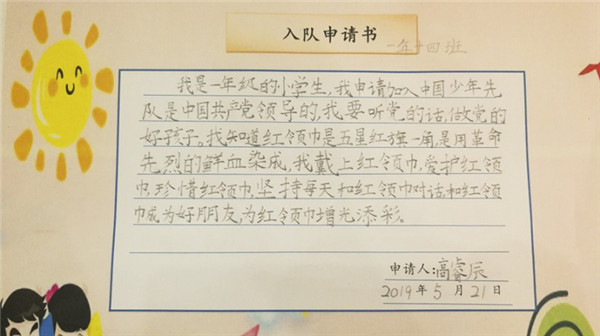 入队申请书
一年十四班
我是一年级的小学生，我申请加入中国少年先
队是中国共产党领导的，我要听党的话，做党的
好孩子。我知道红领巾是五星红旗一角，是用革命
先烈的鲜血染成，我戴上红领巾，爱护红领
巾，珍惜红领巾，坚持每天和红领巾对话，和红领
巾成为好朋友，为红领巾增光添彩。
申请人：高睿辰
2019年5月21日